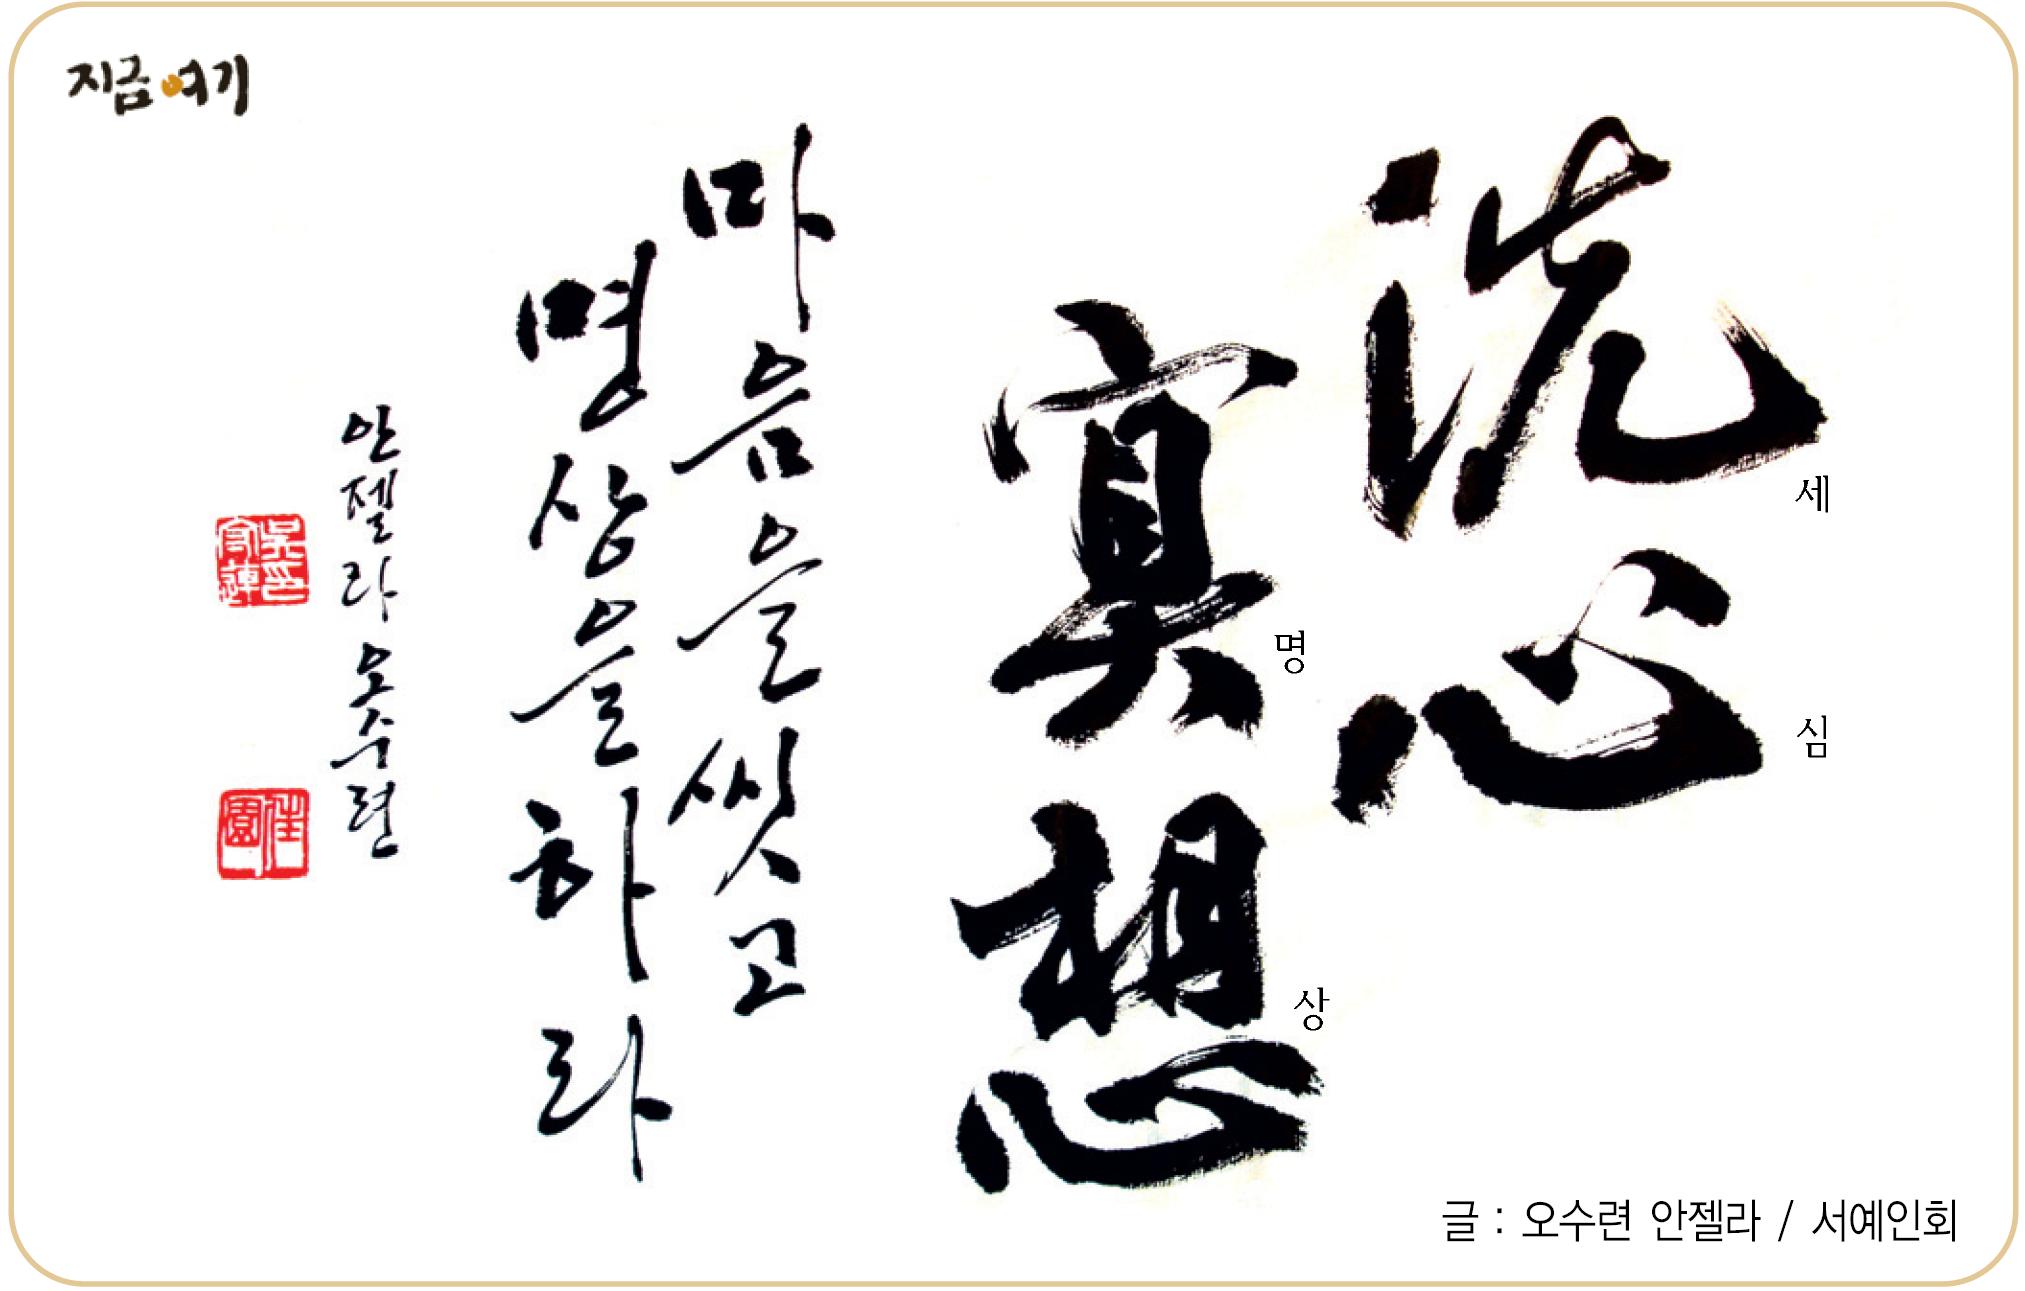 지금여기
洗心
세
심
冥想
명
상
마음을씻고
명상을하라
안젤라 오수련
글 : 오수련 안젤라 / 서예인회